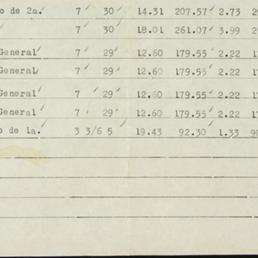 o de 2a. 7 30 14.31 207.57 2.73 2
7 30 18.01 261.07 3.99 2
General 7 29 12.60 179.55 2.22 17
General 7 29 12.60 179.55 2.22 17
General 7 29 12.60 179.55 2.22 17
General 7 29 12.60 179.55 2.22 17
o de 1a. 3 3/6 5 19.43 92.30 1.33 9